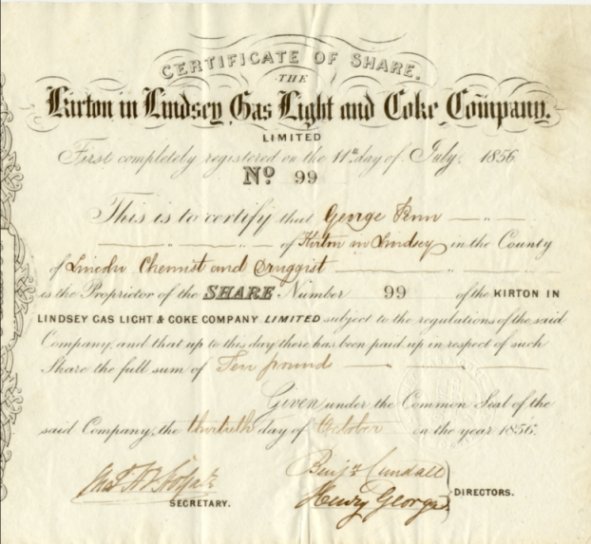 CERTIFICATE OF SHARE.
THE
Kirton in Lindsey Gas Light and Coke Company.
LIMITED
First completely registered on the 11th day of July 1856
No 99
This is to certify that George
of Kirton in Lindsey in the County
of Lincoln Chemist and Druggist
is the Proprietor of the SHARE Number 99 of the KIRTON IN
LINDSEY GAS LIGHT & COKE COMPANY LIMITED subject to the regulations of the said
Company, and that up to this day there has been paid up in respect of such
Share the full sum of Ten pounds
Given under the Common Seal of the
said Company, the thirtieth day of October in the year 1856.
Benjn. Cundall
Henry George
SECRETARY.
DIRECTORS.